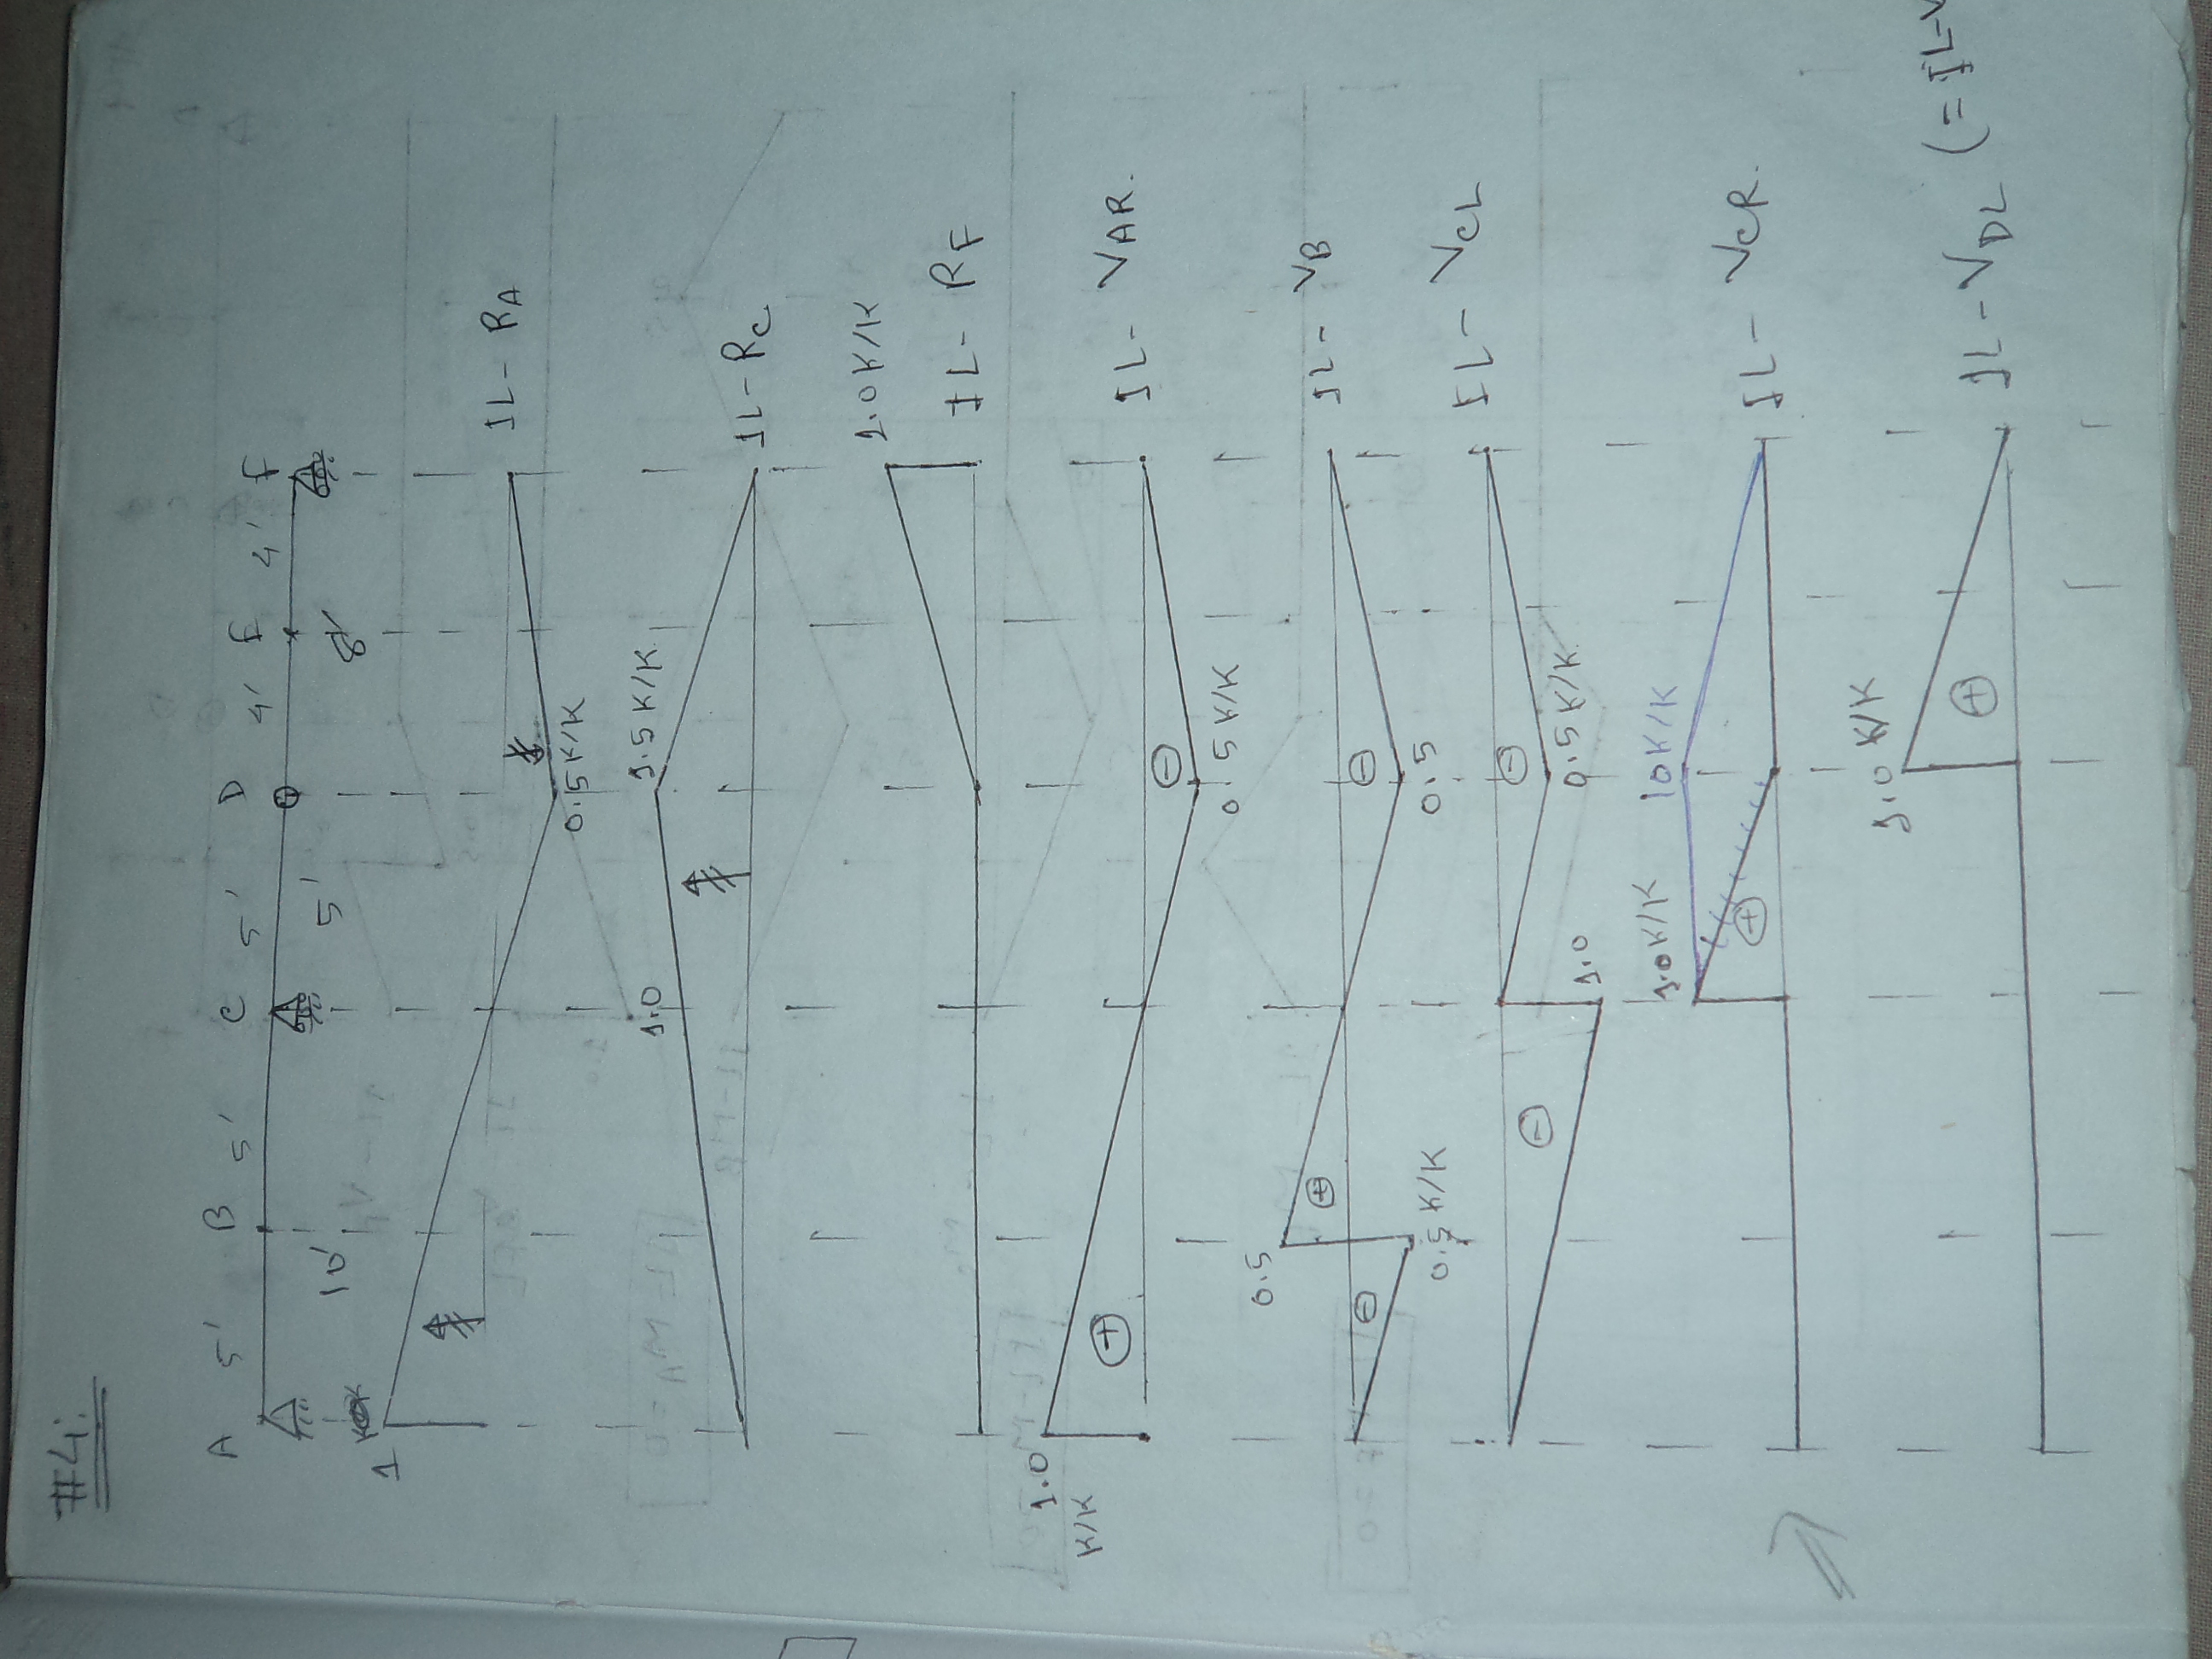 #4:
A 5' B 5' C 5' D 4' E 4' F
10' 5' 8'
1
IL-RA
0.5K/K
1.5K/K.
1.0
IL-RC
1.0K/K
IL-RF
1.0
K/K
+
-
0.5K/K
IL-VAR.
0.5
+
-
0.5K/K
-
0.5
IL-VB
-
1.0
-
0.5K/K
IL-VCL
1.0K/K
+
10K/K
IL-VCR.
1.0 K/K
+
IL-VDL (=IL-V